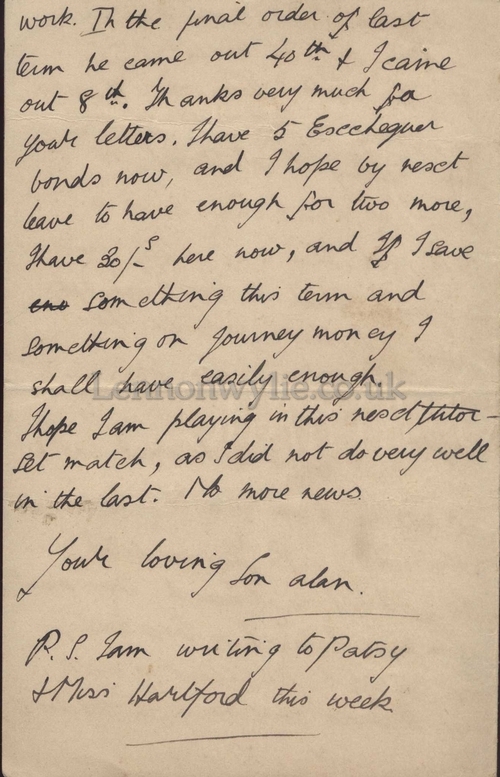 work. In the final order of last
term he came out 40th & I came
out 8th. Thanks very much for
your letters. I have 5 Exchequer
bonds now, and I hope by next
leave to have enough for two more,
I have 30/-s here now, and If I save
eno something this term and
something on Journey money I
shall have easily enough.
Lennonwylie.co.uk
I hope I am playing in this next tutor-
set match, as I did not do very well
in the last. No more news.
Your loving Son alan.
P.S. I am writing to Patsy
& Miss Hartford this week